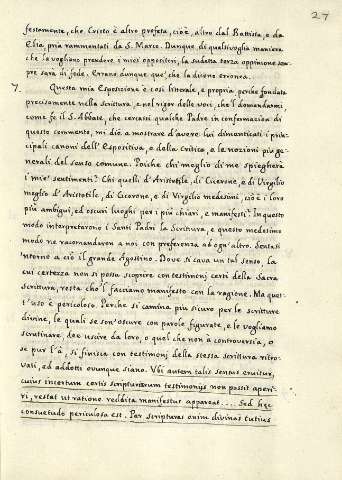 27
festamente, che Cristo è altro profeta, cioè, altro dal Battista, e da
Elia, pria rammentati da S. Marco. Dunque di qualsivoglia maniera
che la vogliono prendere i miei oppositori, la sudetta terza opinione sem-
pre sarà di fede. Errano dunque que' che la dicono erronea.
7. Questa mia Esposizione è così litterale, e propria perchè fondata
precisamente nella Scrittura, e nel rigor delle voci, che l'domandarmi
come fè il S. Abbate, che cercassi qualche Padre in confermazion di
questo commento, mi diè a mostrare d'avere lui dimenticati i prin-
cipali canoni dell'Espositiva, e della Critica, e le nozioni più ge-
nerali del senso comune. Poichè chi meglio di me spiegherà
i mie' sentimenti? Chi quelli d'Aristotile, di Cicerone, e di Virgilio
meglio d'Aristotile, di Cicerone, e di Virgilio medesimi, cioè i loro
più ambigui, ed oscuri luoghi per i più chiari, e manifesti? In questo
modo interpretarono i Santi Padri la Scrittura, e questo medesimo
modo ne racomandaron a noi con preferenza ad ogn'altro. Sentasi
'ntorno a ciò il grande Agostino. Dove si cava un tal senso, la
cui certezza non si possa scoprire con testimonj certi della Sacra
scrittura, resta che 'l facciamo manifesto con la ragione. Ma quest'
t'uso è pericoloso. Perchè si camina più sicuro per le scritture
divine, le quali se son'oscure con parole figurate, e le vogliamo
scrutinare, dee uscire da loro, o quel che non a controversia, o
se pur l'à, si finisca con testimonj della stessa scrittura ritro-
vati, ed addotti ovunque siano. Vbi autem talis sensus eruitur,
cuius incertum certis scripturarum testimonijs non possit aperi-
ri, restat ut ratione reddita manifestus appareat.... Sed hęc
consuetudo periculosa est. Per scripturas enim divinas tutius